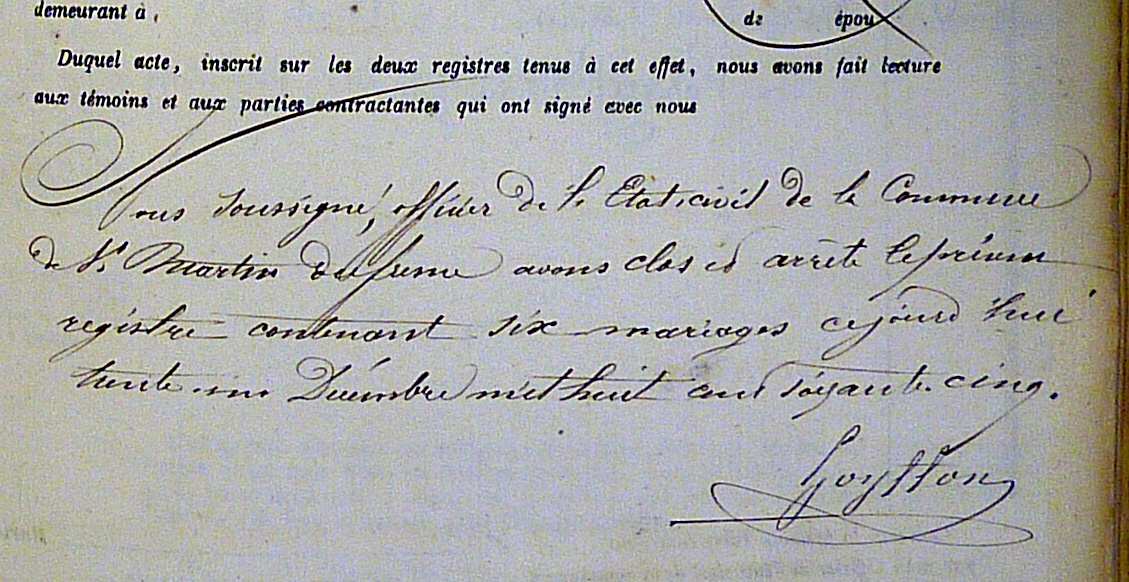 demeurant à,
de épou
Duquel acte, inscrit sur les deux registres tenus à cet effet, nous avons fait lecture
aux témoins et aux parties contractantes qui ont signé avec nous
Nous soussigné, officier de l'Etat-civil de la Commune
de St Martin du frene avons clos et arrêté le présent
registre contenant six mariages cejourd'hui
trente-un Décembre mil huit cent soixante-cinq.